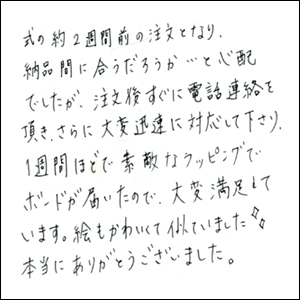 式の約2週間前の注文となり、
納品間に合うだろうか…と心配
でしたが、注文後すぐに電話連絡を
頂き、さらに大変迅速に対応して下さり、
1週間ほどで素敵なラッピングで
ボードが届いたので、大変満足して
います。絵もかわいくて似ていました✧
本当にありがとうございました。